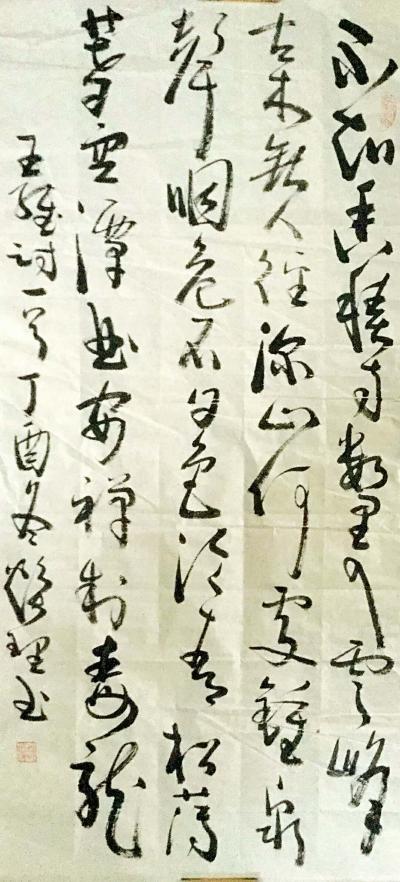 不知香積寺數里入雲峰
古木無人徑深山何處鐘泉
聲咽危石日色冷青松薄
暮空潭曲安禪制毒龍
王維詩一首丁酉冬理书